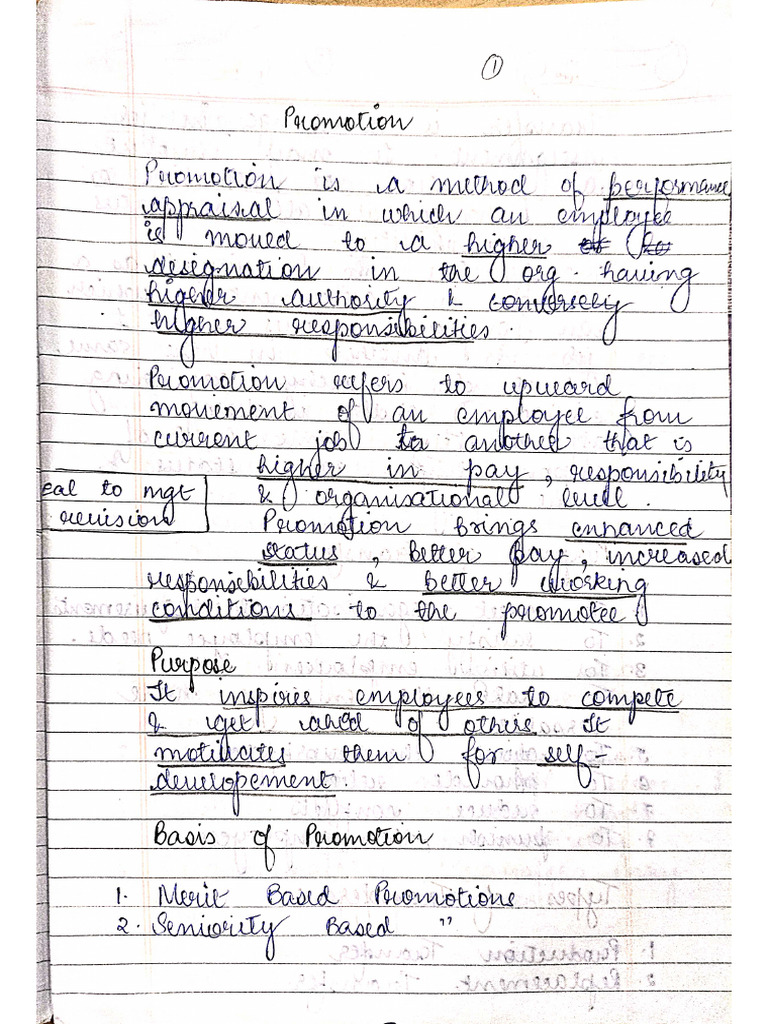 1
Promotion
Promotion is a method of performance
appraisal in which an employee
is moved to a higher
designation in the org. having
higher authority & conversely
higher responsibilities.
Promotion refers to upward
movement of an employee from
current job to another that is
higher in pay, responsibility
eal to mgt
& organisational level.
revision
Promotion brings enhanced
status, better pay, increased
responsibilities & better working
conditions to the promotee
Purpose
It inspires employees to compete
& get ahead of others. It
motivates them for self-
developement.
Basis of Promotion
1. Merit Based Promotions
2. Seniority Based "